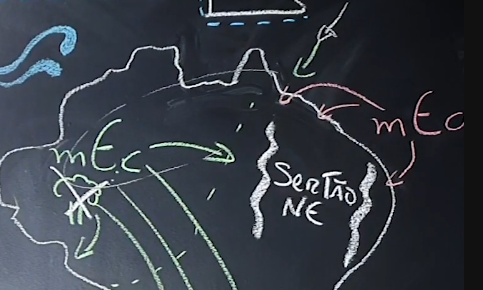 mEc
mEc
SerTão
NE